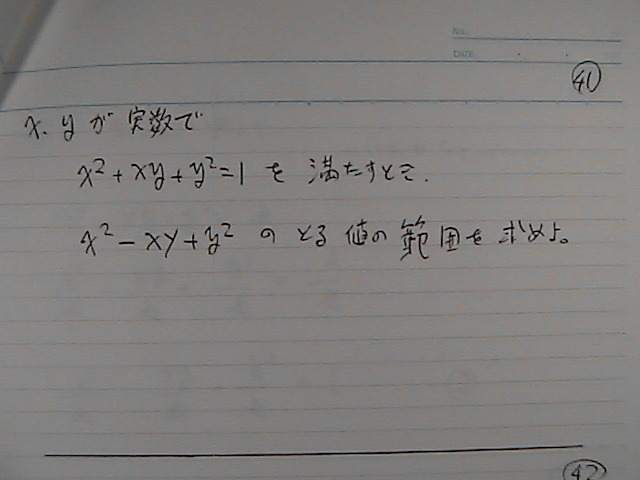 No.
DATE
41
x, yが実数で
x²+xy+y²=1を満たすとき.
x²-xy+y²のとる値の範囲を求めよ。
42